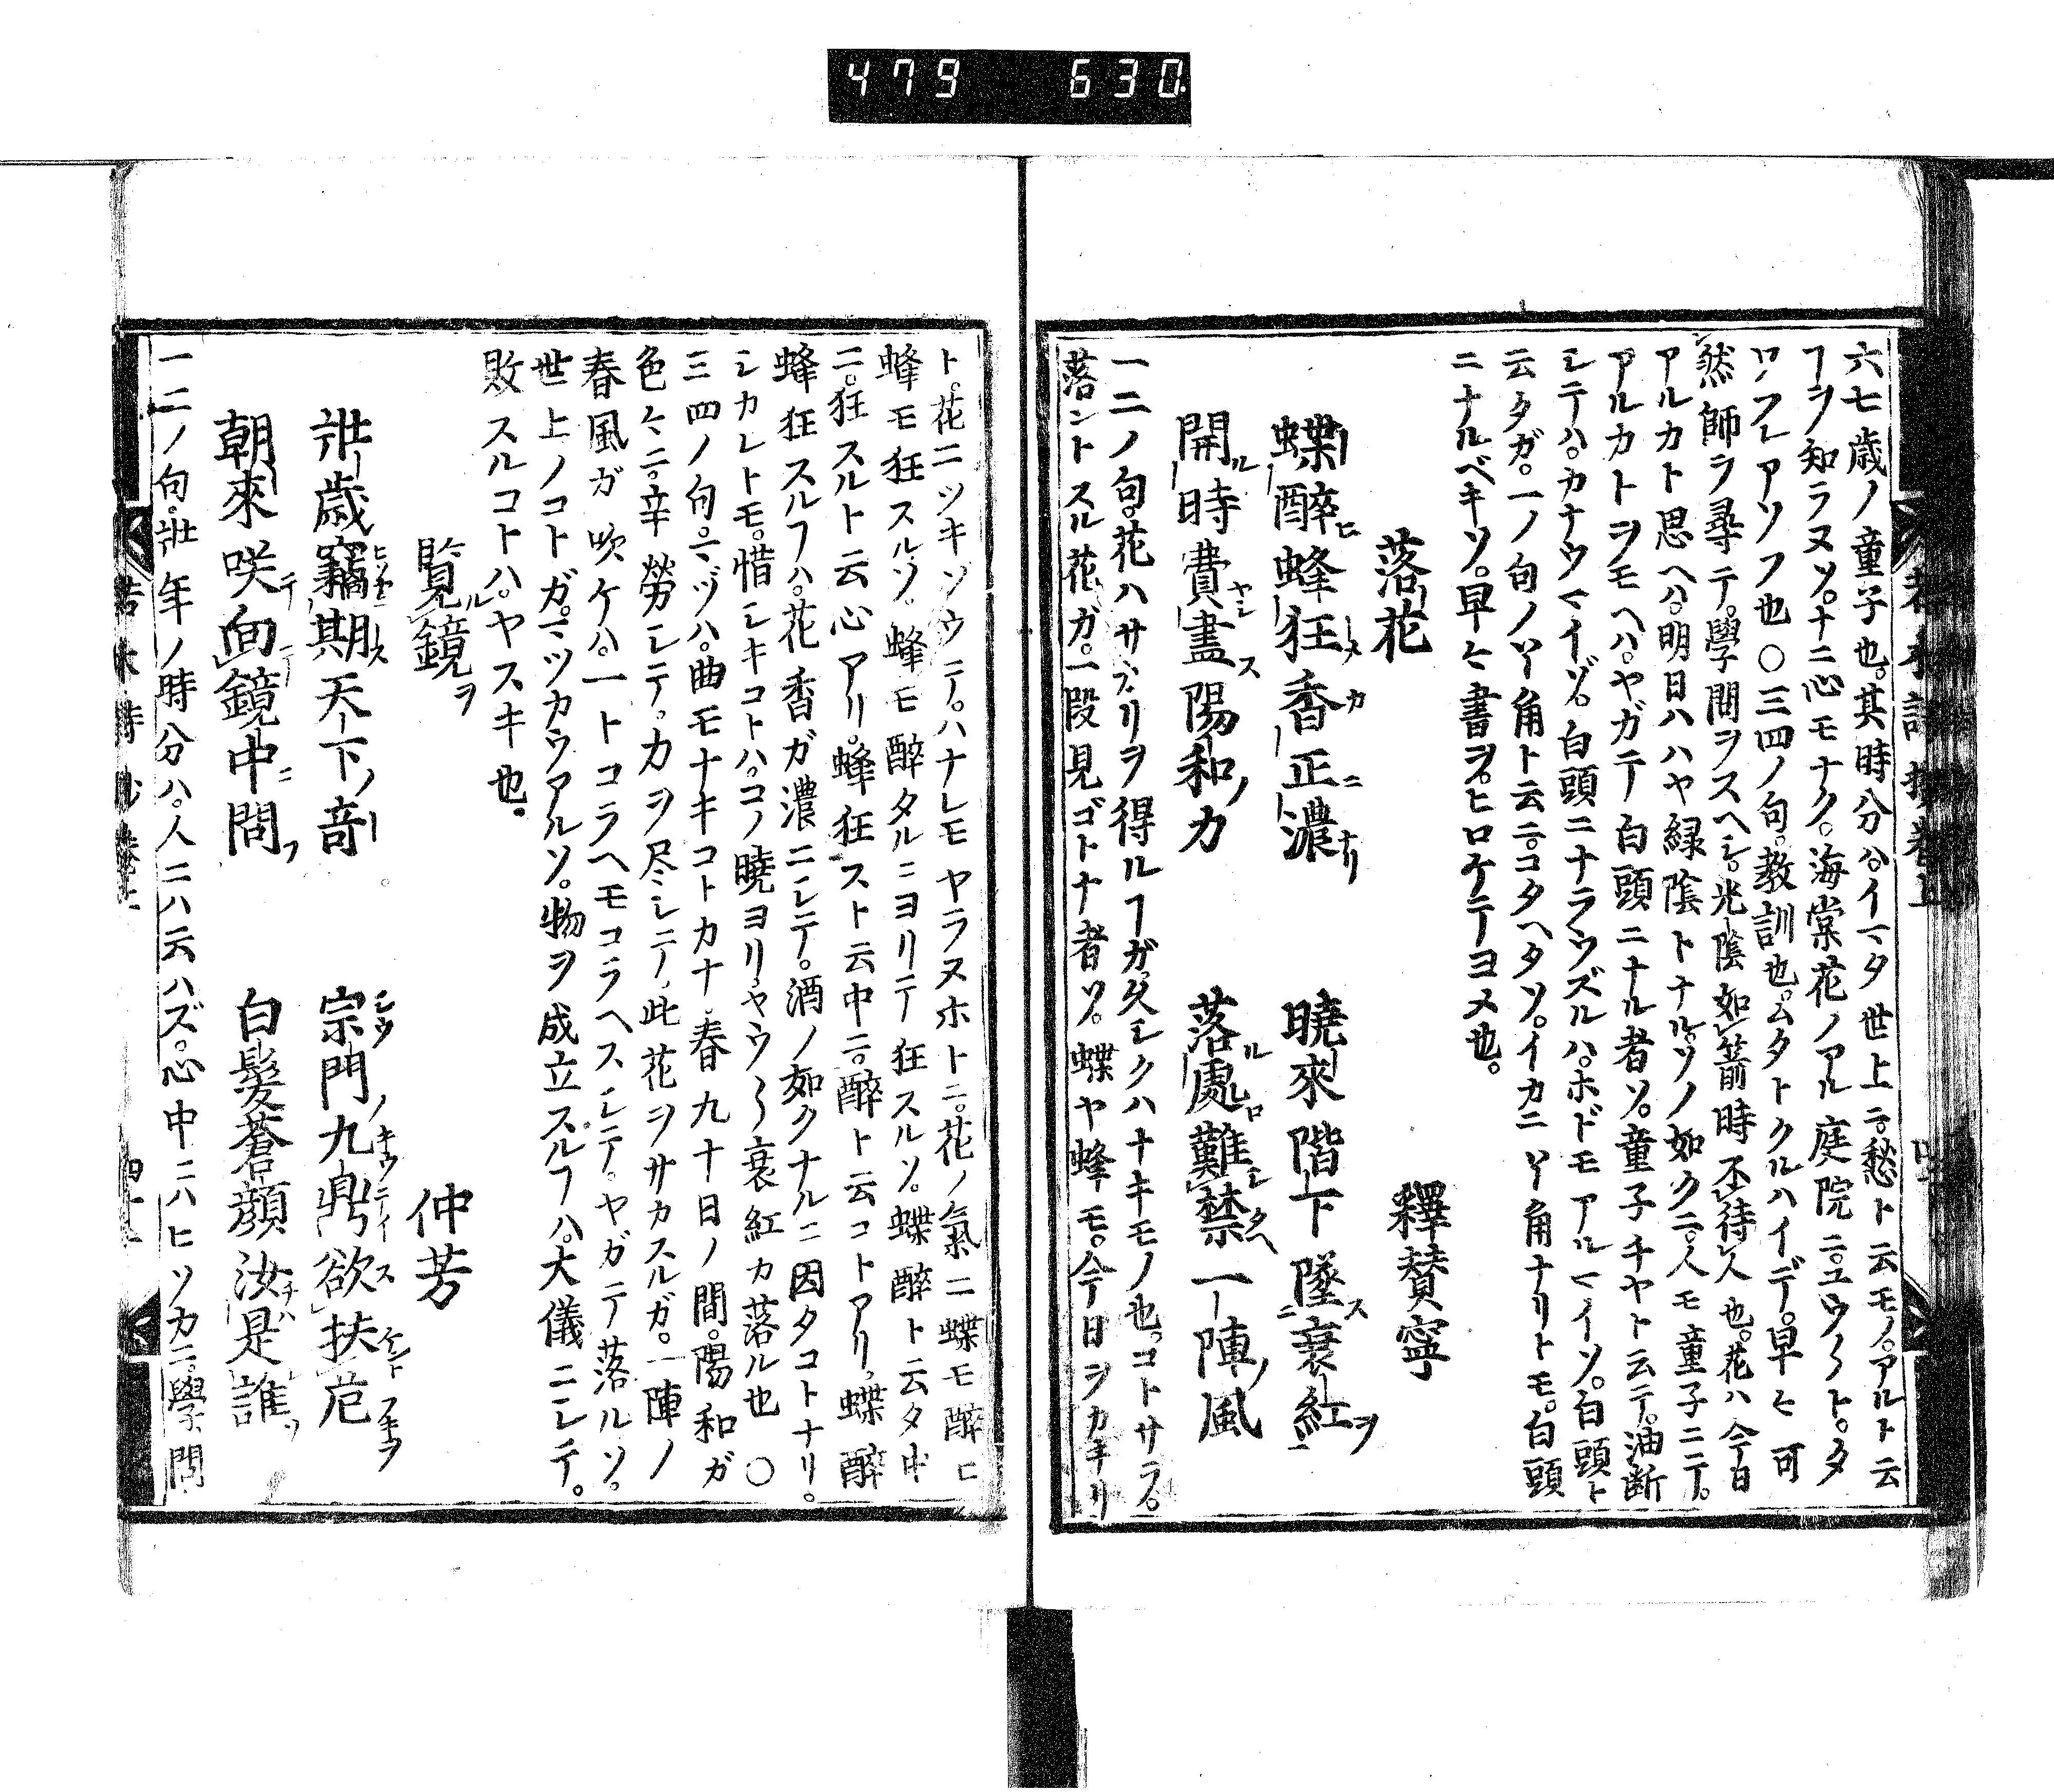 479 630
六七歳ノ童子也。其時分ハ。イマタ世上ニ愁ト云モノ。アルト云
ヿヲ知ラヌソ。ナニ心モナク。海棠花ノアル庭院ニ。ユウ〳〵ト。タ
ワフレアソフ也〇三四ノ句。教訓也。ムタトクルハイデ。早ヒ可
然師ヲ尋テ。學問ヲスヘシ。光陰如箭時不待人也。花ハ今日
アルカト思ヘハ。明日ハハヤ緑陰トナル。ソノ如クニ。人モ童子ニテ。
アルカトヲモヘハ。ヤガテ白頭ニナル者ソ。童子チヤト云テ。油断
シテハ。カナウマイゾ。白頭ニナラウズルハ。ホドモアルマイソ。白頭ト
云タガ。一ノ句ノ丫角ト云ニ。コタヘタソ。イカニ丫角ナリトモ。白頭
ニナルベキソ。早ヒ書ヲ。ヒロケテヨメ也。
落花 釋賛寧
蝶醉蜂狂香正濃 曉來階下墜衰紅
開時費盡陽和力 落處難禁一陣風
一二ノ句。花ハサカリヲ得ルヿガ。久シクハナキモノ也。コトサラ。
落ントスル花ガ。一段見ゴトナ者ソ。蝶ヤ蜂モ。今日ヲカギリ
ト。花ニツキソウテ。ハナレモヤラヌホトニ。花ノ氣ニ蝶モ醉ヒ
蜂モ狂スルソ。蜂モ醉タルニヨリテ狂スルソ。蝶醉ト云タ中
ニ。狂スルト云心アリ。蜂狂スト云中ニ。醉ト云コトアリ。蝶醉
蜂狂スルフハ。花香ガ濃ニシテ。酒ノ如クナルニ因タコトナリ。
シカレトモ。惜シキコトハ。コノ曉ヨリ。ヤウ〳〵衰紅カ落ル也〇
三四ノ句。ニヅハ。曲モナキコトカナ。春九十日ノ間。陽和ガ
色々ニ。辛勞シテ。力ヲ尽シテ。此花ヲサカスルガ。一陣ノ
春風ガ吹ケハ。一トコラヘモコラヘスシテ。ヤガテ落ルソ。
世上ノコトガ。マツカウアルソ。物ヲ成立スルフハ。大儀ニシテ。
敗スルコトハ。ヤスキ也。
覧鏡 仲芳
壯歳竊期天下竒 宗門九鼎欲扶危
朝來咲向鏡中問 白髮蒼顔汝是誰
一二ノ句。壯年ノ時分ハ。人ニハ云ハズ。心中ニハヒソカニ。學問